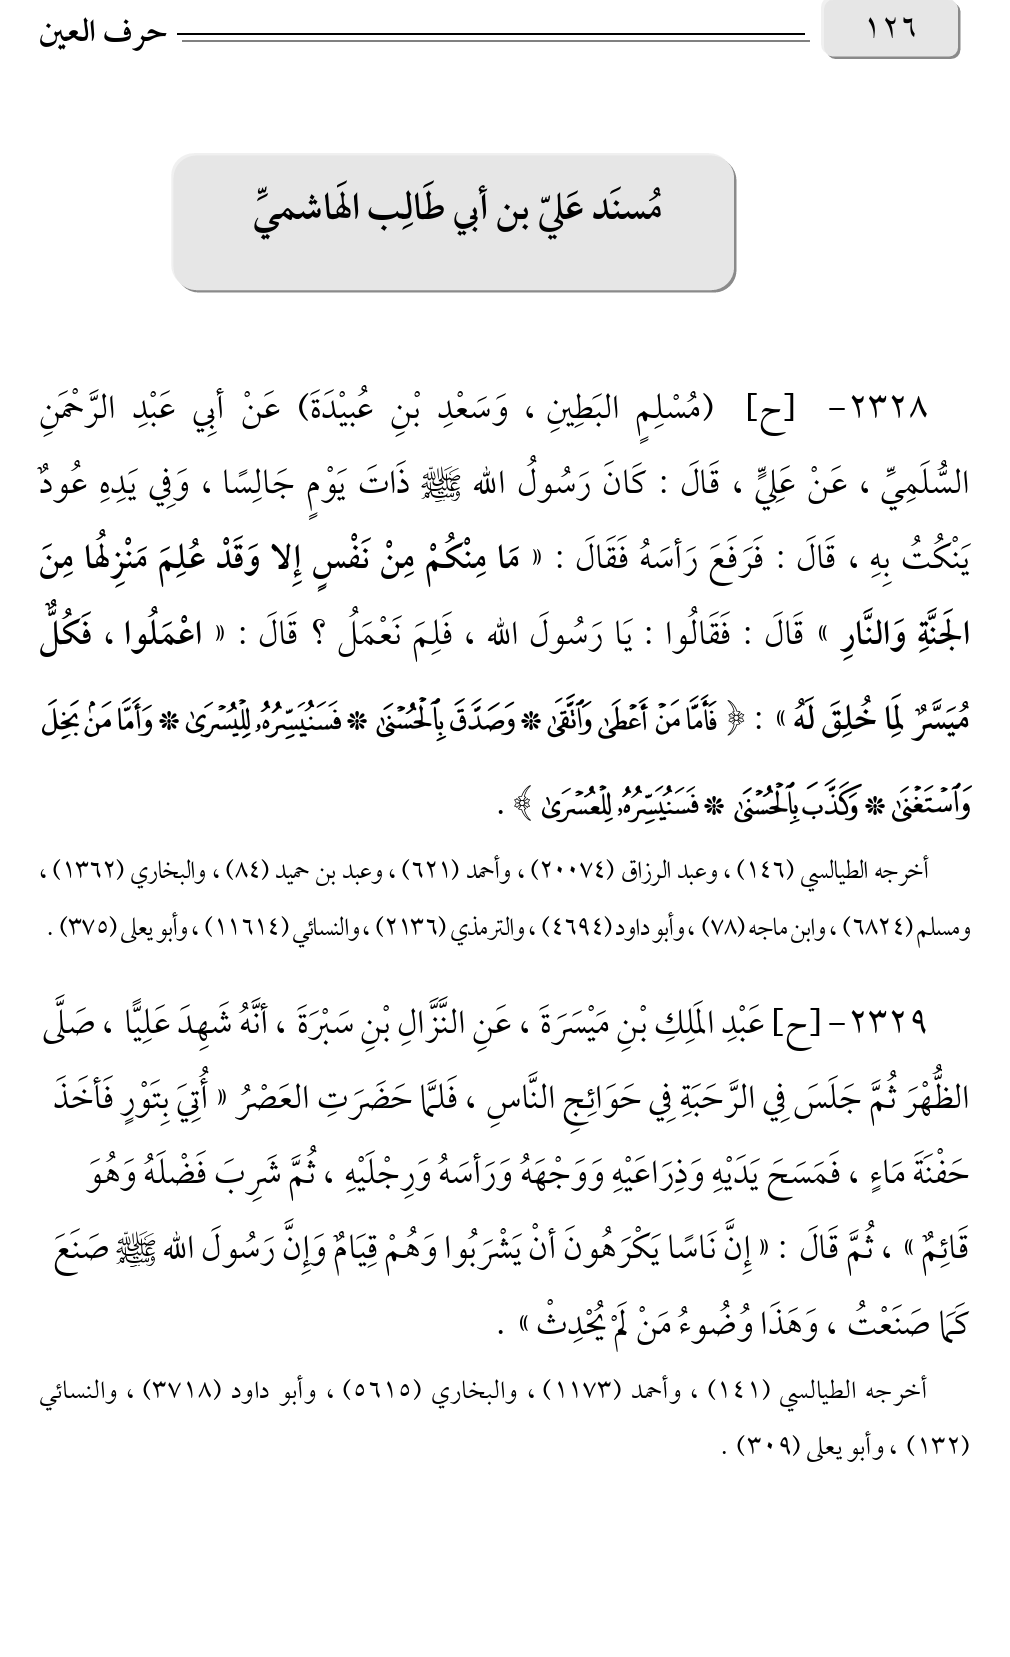 ١٢٦ حرف العين
مُسنَد عَليّ بن أبي طَالِب الهَاشميِّ
٢٣٢٨- [ح] (مُسْلِمٍ البَطِينِ ، وَسَعْدِ بْنِ عُبيْدَةَ) عَنْ أبِي عَبْدِ الرَّحْمَنِ
السُّلَمِيِّ ، عَنْ عَلِيٍّ ، قَالَ : كَانَ رَسُولُ الله ﷺ ذَاتَ يَوْمٍ جَالِسًا ، وَفِي يَدِهِ عُودٌ
يَنْكُتُ بِهِ ، قَالَ : فَرَفَعَ رَأسَهُ فَقَالَ : « مَا مِنْكُمْ مِنْ نَفْسٍ إِلا وَقَدْ عُلِمَ مَنْزِلُهَا مِنَ
الجَنَّةِ وَالنَّارِ » قَالَ : فَقَالُوا : يَا رَسُولَ الله ، فَلِمَ نَعْمَلُ ؟ قَالَ : « اعْمَلُوا ، فَكُلٌّ
مُيَسَّرٌ لِمَا خُلِقَ لَهُ » : ﴿ فَأَمَّا مَنْ أَعْطَىٰ وَٱتَّقَىٰ * وَصَدَّقَ بِٱلْحُسْنَىٰ * فَسَنُيَسِّرُهُۥ لِلْيُسْرَىٰ * وَأَمَّا مَنۢ بَخِلَ
وَٱسْتَغْنَىٰ * وَكَذَّبَ بِٱلْحُسْنَىٰ * فَسَنُيَسِّرُهُۥ لِلْعُسْرَىٰ ﴾ .
أخرجه الطيالسي (١٤٦) ، وعبد الرزاق (٢٠٠٧٤) ، وأحمد (٦٢١) ، وعبد بن حميد (٨٤) ، والبخاري (١٣٦٢) ،
ومسلم (٦٨٢٤) ، وابن ماجه (٧٨) ، وأبو داود (٤٦٩٤) ، والترمذي (٢١٣٦) ، والنسائي (١١٦١٤) ، وأبو يعلى (٣٧٥) .
٢٣٢٩- [ح] عَبْدِ المَلِكِ بْنِ مَيْسَرَةَ ، عَنِ النَّزَّالِ بْنِ سَبْرَةَ ، أنَّهُ شَهِدَ عَلِيًّا ، صَلَّى
الظُّهْرَ ثُمَّ جَلَسَ فِي الرَّحَبَةِ فِي حَوَائِجِ النَّاسِ ، فَلمَّا حَضَرَتِ العَصْرُ « أُتِيَ بِتَوْرٍ فَأخَذَ
حَفْنَةَ مَاءٍ ، فَمَسَحَ يَدَيْهِ وَذِرَاعَيْهِ وَوَجْهَهُ وَرَأسَهُ وَرِجْلَيْهِ ، ثُمَّ شَرِبَ فَضْلَهُ وَهُوَ
قَائِمٌ » ، ثُمَّ قَالَ : « إِنَّ نَاسًا يَكْرَهُونَ أنْ يَشْرَبُوا وَهُمْ قِيَامٌ وَإِنَّ رَسُولَ الله ﷺ صَنَعَ
كَمَا صَنَعْتُ ، وَهَذَا وُضُوءُ مَنْ لَمْ يُحْدِثْ » .
أخرجه الطيالسي (١٤١) ، وأحمد (١١٧٣) ، والبخاري (٥٦١٥) ، وأبو داود (٣٧١٨) ، والنسائي
(١٣٢) ، وأبو يعلى (٣٠٩) .